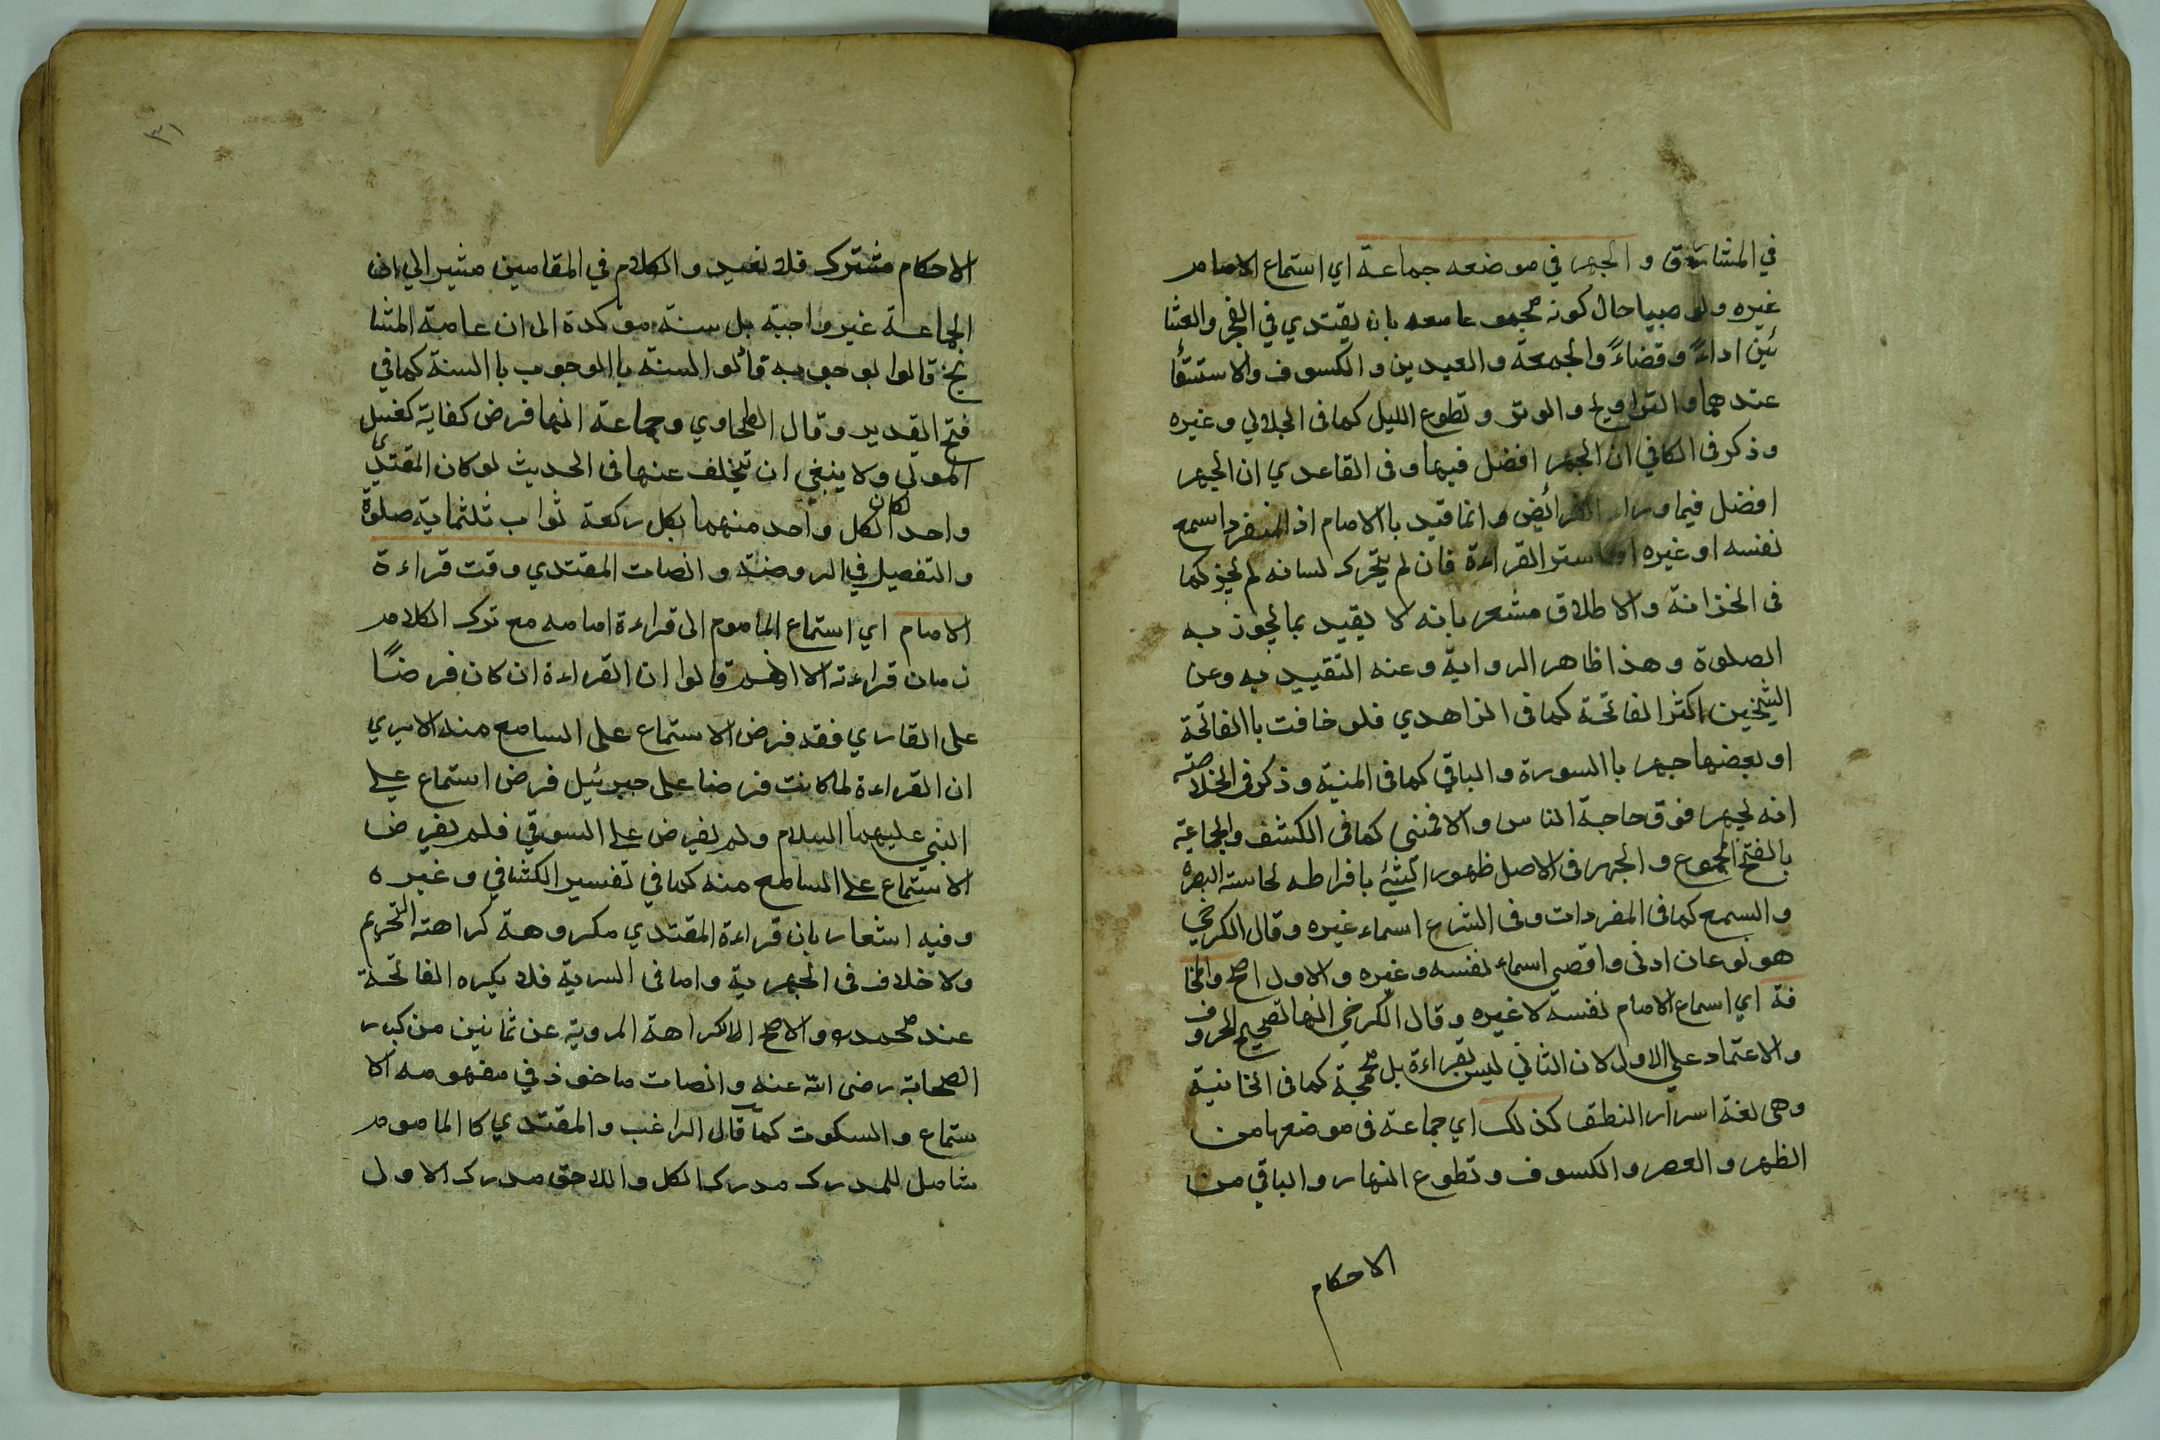 في المشارق والجهر في موضعه جماعة اي استماع الامام
غيره ولو صبيا حال كونه مجهو عا معه بان يقتدي في الفجر والعشا
ئين اداءً وقضاءً والجمعة والعيدين والكسوف والاستسقا
عندهما والتراويح والوتر وتطوع الليل كما فى الجلالي وغيره
وذكر فى الكافي ان الجهر افضل فيها وفى القاعدي ان الجهر
افضل فيما وراء الفرائض وانما قيد باالامام اذ المنفرد اسمع
نفسه او غيره القراءة فان لم يتحرك لسانه لم يجز كما
فى الخزانة والاطلاق مشعر بانه لا يقيد بما يجوز به
الصلوة وهذا ظاهر الرواية وعنه التقييد به وعن
الشيخين اكثر الفاتحة كما فى الزاهدي فلو خافت باالفاتحة
او بعضها جهر باالسورة والباقي كما فى المنية وذكر فى الخلاصة
انه يجهر فوق حاجة الناس والا كما فى الكشف والجماعة
بالفتح المجموع والجهر فى الاصل ظهور الشئ بافراطه لحاسة البصر
والسمع كما فى المفردات وفى الشرع اسماء غيره وقال الكرخي
هو نوعان ادنى واقصى اسماع نفسه وغيره والاول اصح والمخا
فة اي اسماع الامام نفسه لا غيره وقال الكرخي انها تصحيح الحروف
والاعتماد على الاول لان الثاني ليس بقراءة بل مجمجة كما فى الخانية
وهى لغة اسرار النطق كذلك اي جماعة فى موضعها من
الظهر والعصر والكسوف وتطوع النهار والباقي من
الاحكام
٣١
الاحكام مشترك فلا نعيد والكلام في المقامين مشير الي ان
الجماعة غير واجبة بل سنة موكدة الى ان عامة المشا
يخ قالوا بوجوبه قائلوا السنة باالوجوب باالسنة كما في
فتح القدير وقال الطحاوي وجماعة انها فرض كفاية كغسل
الموتي ولا ينبغي ان يتخلف عنها فى الحديث لو كان المقتدي
واحدا لكان لكل واحد منهما بكل ركعة ثواب ثلثماية صلوة
والتفصيل في الروضة وانصات المقتدي وقت قراءة
الامام اي استماع الماموم الى قراءة امامه مع ترك الكلام
زمان قراءته الا قالوا ان القراءة ان كان فرضًا
على القاري فقد فرض الاستماع على السامع منه الا يري
ان القراءة لما كانت فرضا على جبرئيل فرض استماع علي
النبي عليهما السلام ولم يفرض علي السوقي فلم يفرض
الاستماع علا السامع منه كما في تفسير الكشافي وغيره
وفيه اشعار بان قراءة المقتدي مكروهة كراهته التحريم
ولا خلاف فى الجهرية واما فى السرية فلا يكره الفاتحة
عند محمد والاصح الكراهة المروية عن ثمانين من كبار
الصحابة رضى الله عنه وانصات ماخوذ في مفهومه الا
ستماع والسكوت كما قال الراغب والمقتدي كا الماموم
شامل للمدرك مدرك الكل واللاحق مدرك الاول